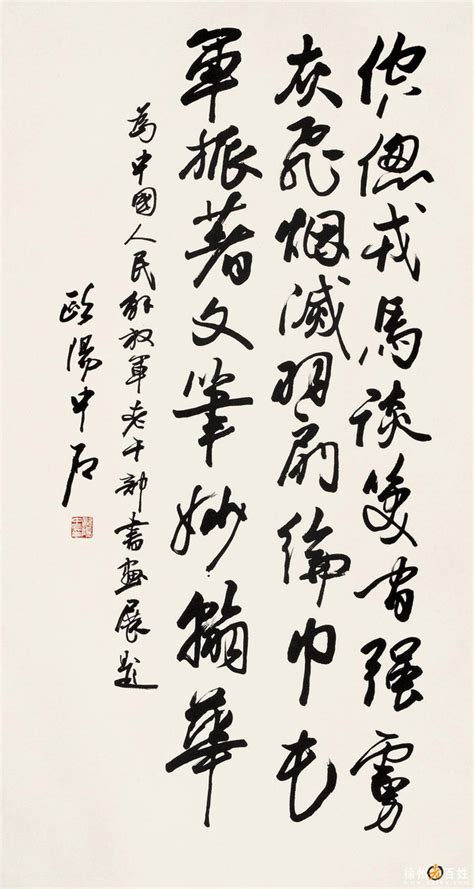 倥偬戎馬談笑間强虜
灰飛烟滅羽扇綸巾
軍振著文筆妙翰華
為中國人民解放軍老干部書畫展題
歐陽中石